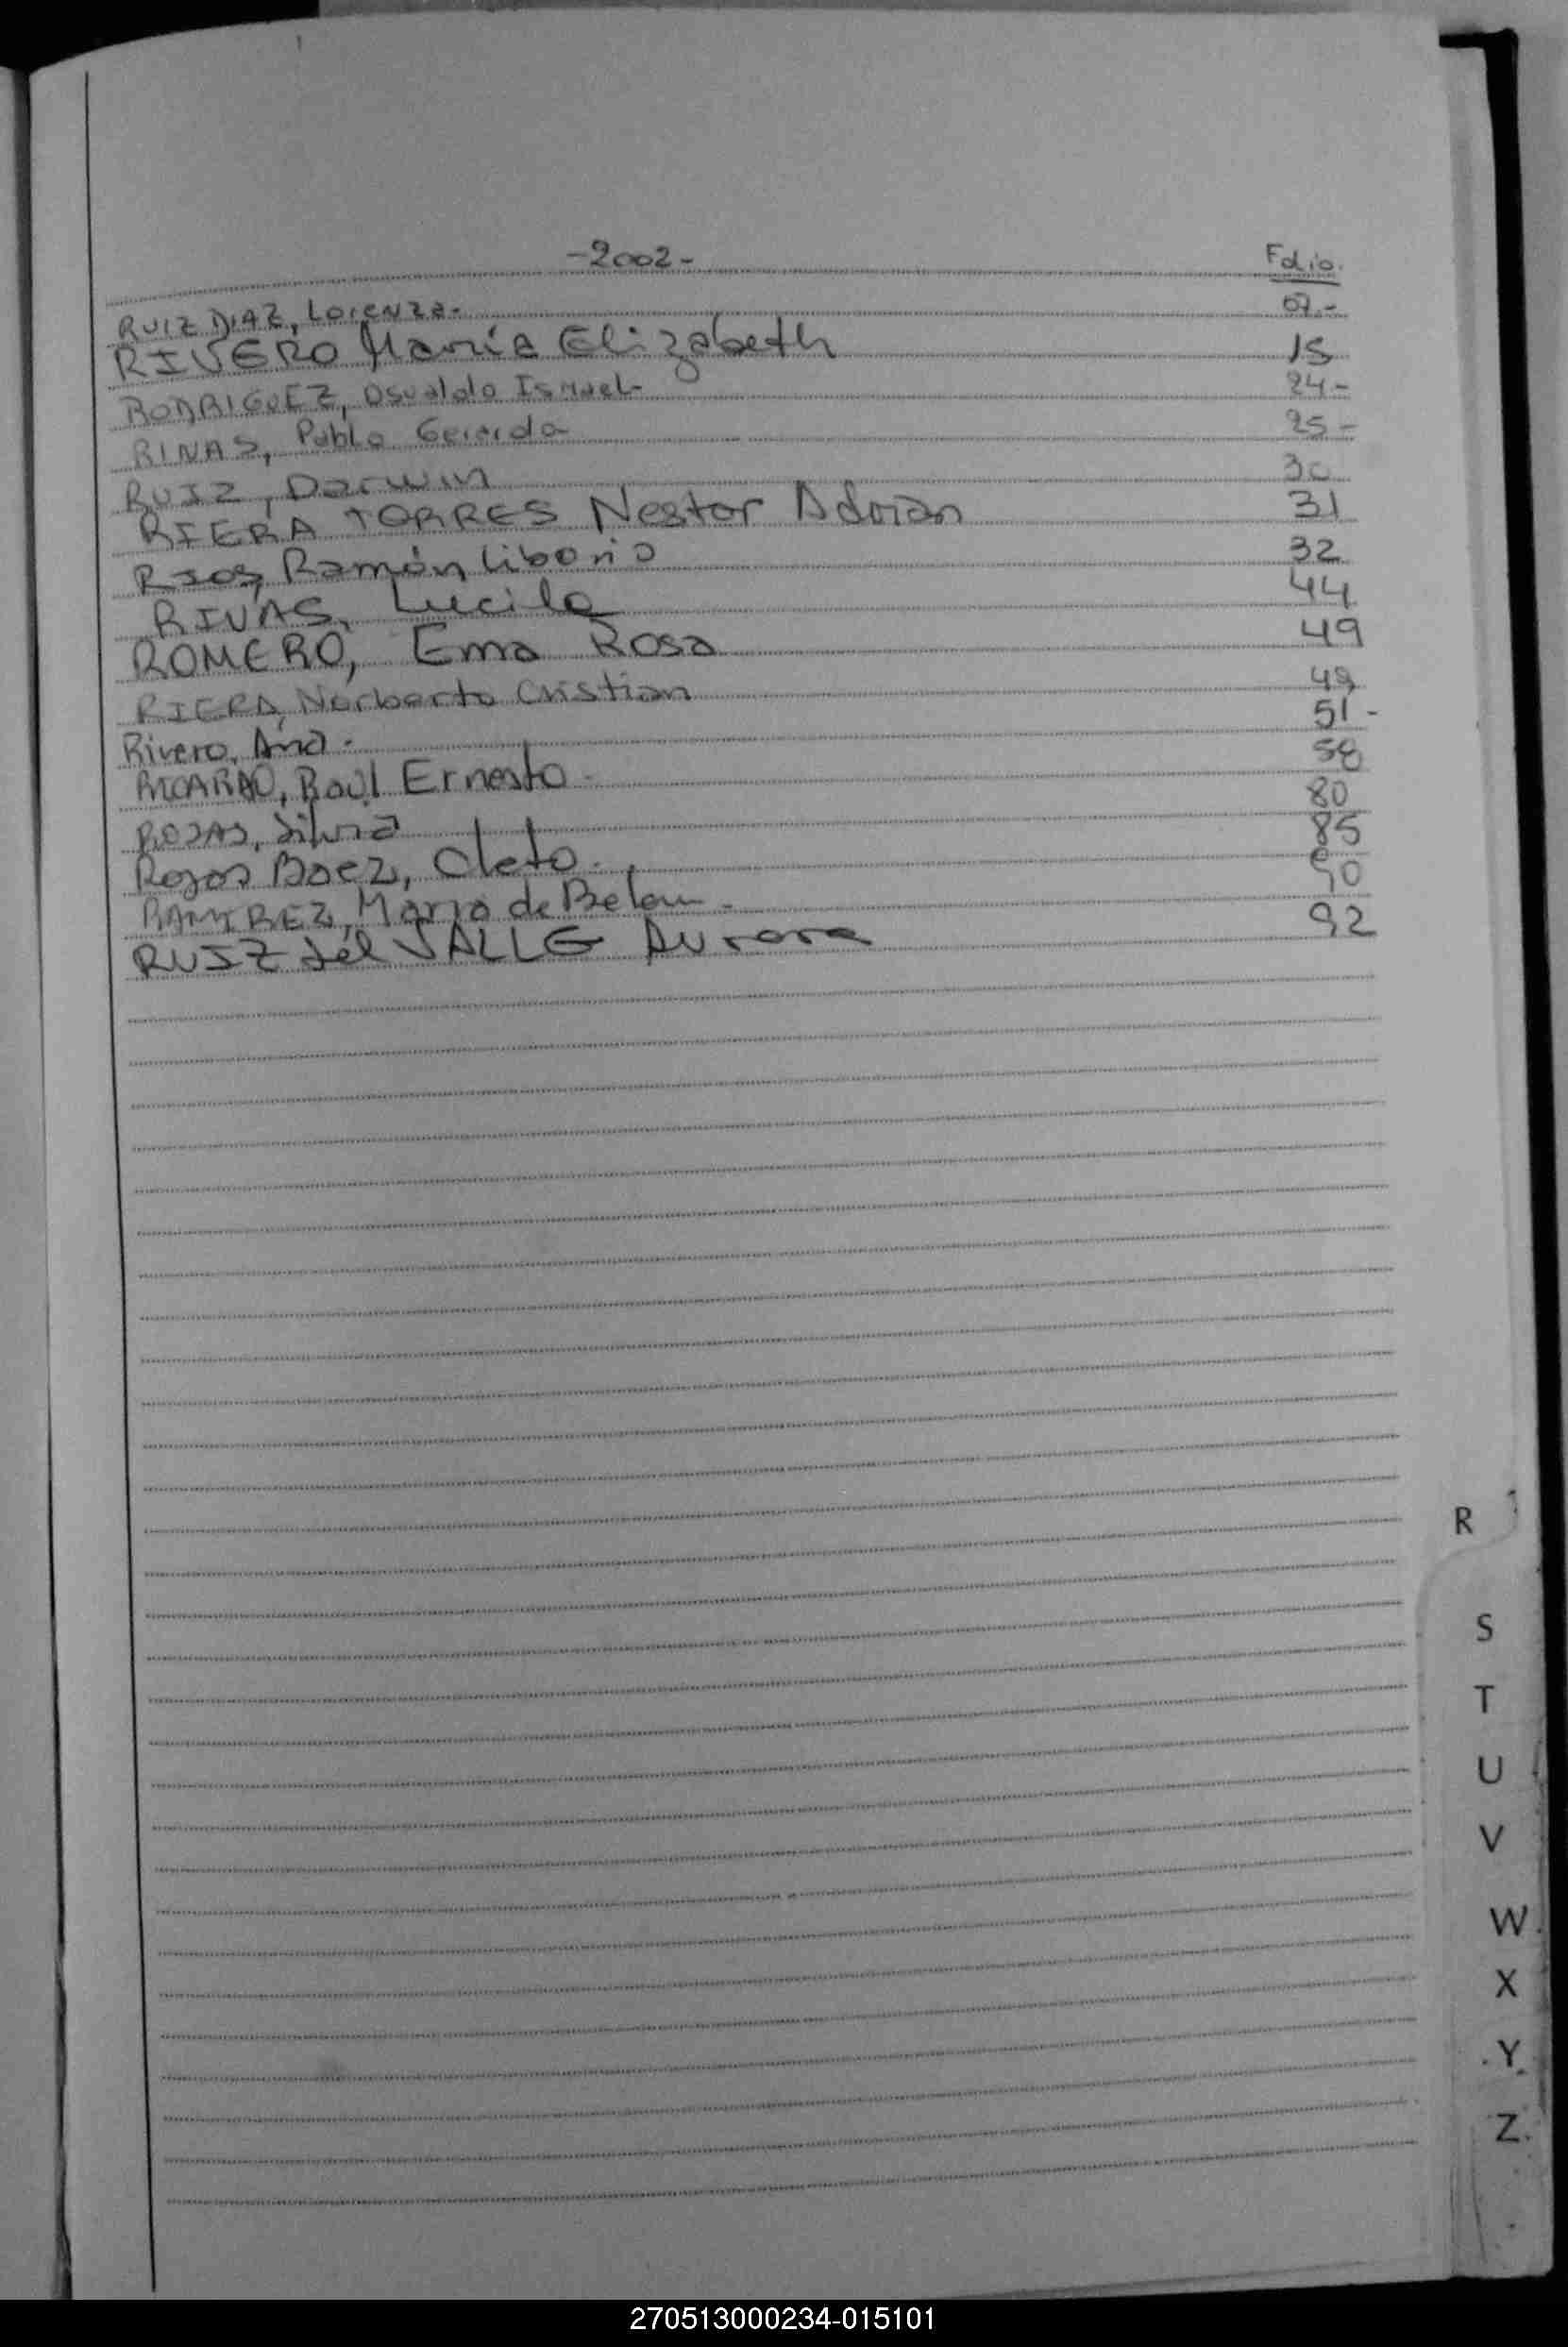 -2002- Folio.
RUIZ DIAZ, Lorenza.- 07.-
RIVERO María Elizabeth 15
RODRIGUEZ, Osvaldo Ismael- 24-
RINAS, Pablo Gerardo 25-
RUIZ, Darwin 30
RIERA TORRES Nestor Adrian 31
RIOS, Ramón Liborio 32
RIVAS, Lucila 44
ROMERO, Ema Rosa 49
RIERA, Norberto Cristian 49
Rivero, Ana.- 51-
RICARDO, Raúl Ernesto- 58
ROJAS, Silvia 80
Rojas Baez, Cleto.- 85
RAMIREZ, Maria de Belen- 90
RUIZ del VALLE Aurora 92
R
S
T
U
V
W
X
Y
Z
270513000234-015101